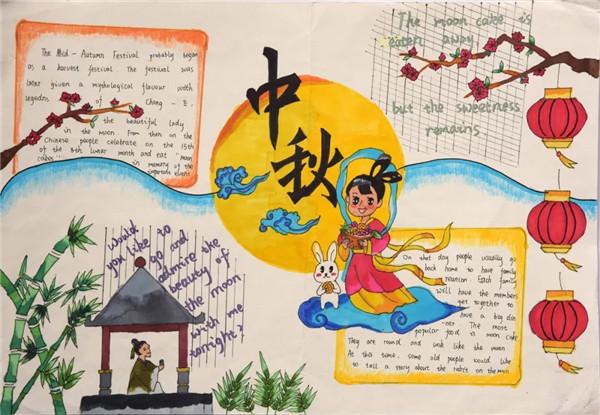 The Mid-Autumn Festival probably began
as a harvest festival. The festival was
later given a mythological flavour with
legends of Chang-E.
the beautiful lady
in the moon. From then on the
Chinese people celebrate on the 15th
of the 8th lunar month and eat "moon
cakes" in memory of the
important event
中
秋
The moon cake is
eaten away
but the sweetness
remains
Would
you like to
go and
admire the
beauty of
the moon
with me
tonight?
On that day people usually go
back home to have family
reunion Each family
Will have the members
get together to
have a big din
-ner The most
popular food is moon cake
They are round and look like the moon
At this time. some old people would like
to tell a story about the rabit on the moon